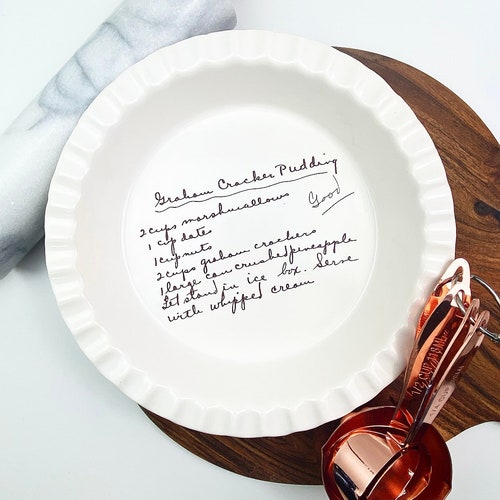 Graham Cracker Pudding
Good
2 cups marshmallows
1 cup dates
1 cup nuts
2 cups graham crackers
1 large can crushed pineapple
Let stand in ice box. Serve
with whipped cream
1/2 CUP